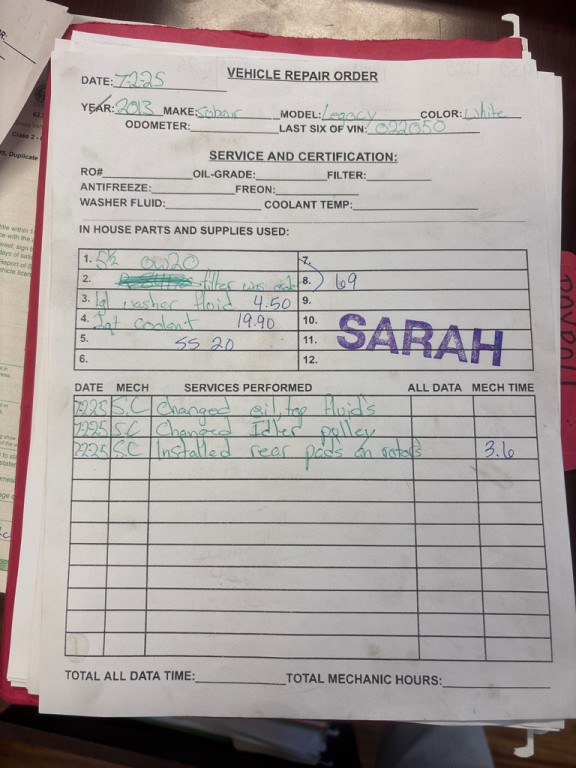 VEHICLE REPAIR ORDER
DATE: 7-2-25
YEAR: 2013 MAKE: Subair MODEL: Legacy COLOR: White
ODOMETER: LAST SIX OF VIN: 022050
SERVICE AND CERTIFICATION:
RO# OIL-GRADE: FILTER:
ANTIFREEZE: FREON:
WASHER FLUID: COOLANT TEMP:
IN HOUSE PARTS AND SUPPLIES USED:
1. 5½ 0w20 7.
2. filter was 8. 69
3. 1gl washer fluid 4.50 9.
4. 2qt coolant 19.90 10.
5. SS 20 11.
6. 12.
SARAH
DATE MECH SERVICES PERFORMED ALL DATA MECH TIME
7-2-25 S.C Changed oil, top fluid's
7-2-25 S.C Changed Idler pulley
7-2-25 S.C Installed rear pads an rotors 3.6
TOTAL ALL DATA TIME: TOTAL MECHANIC HOURS:
Class 2 -
, Duplicate